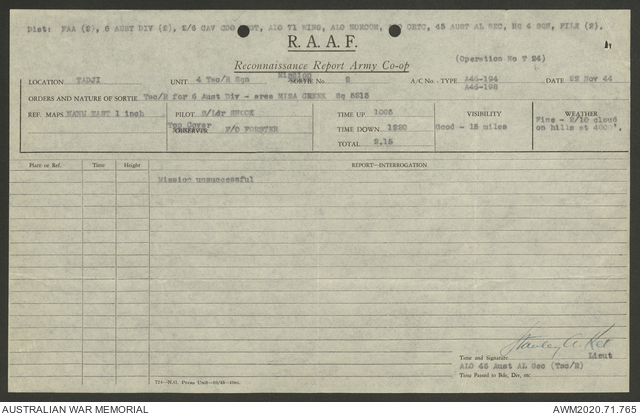 Dist: FAA (2), 6 AUST DIV (2), 2/6 CAV CDO, ALO 71 WING, ALO NORCOM, 45 AUST AL SEC, HQ 4 SQN, FILE (2).
R.A.A.F.
Reconnaissance Report Army Co-op
(Operation No T 24)
LOCATION TADJI UNIT 4 Tac/R Sqn MISSION SORTIE No. 2 A/C No.-TYPE A46-194 DATE 22 Nov 44
A46-198
ORDERS AND NATURE OF SORTIE Tac/R for 6 Aust Div - area CREEK Sq 5213
REF. MAPS KANU EAST 1 inch PILOT S/Ldr TIME UP 1005 VISIBILITY WEATHER
Top Cover
OBSERVER F/O FORSTER TIME DOWN 1220 Good - 15 miles Fine - 2/10 cloud
on hills at 4000'.
TOTAL 2.15
Place or Ref. Time Height REPORT—INTERROGATION
Mission unsuccessful
Stanley A.
Time and Signature Lieut
ALO 45 Aust AL Sec (Tac/R)
Time Passed to Bde, Div, etc.
AUSTRALIAN WAR MEMORIAL AWM2020.71.765